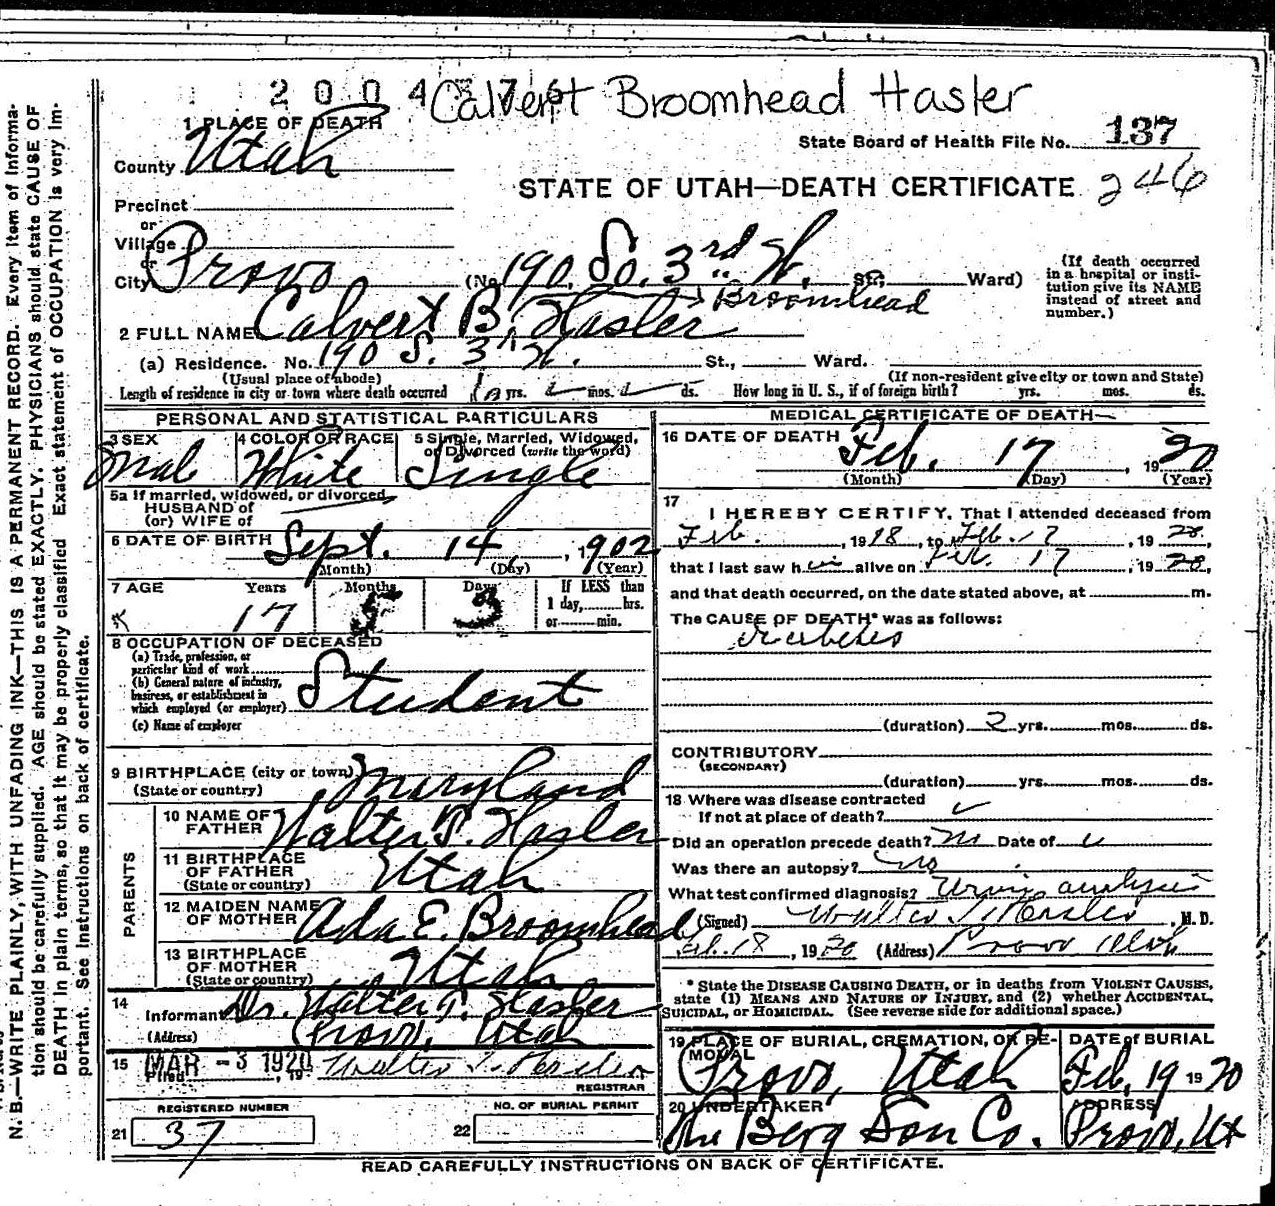 2004376
Calvert Broomhead Hasler
1 PLACE OF DEATH
State Board of Health File No. 137
County Utah
STATE OF UTAH—DEATH CERTIFICATE 246
Precinct
or
Village
or
City Provo (No. 190 So. 3rd W. St., Ward)
(If death occurred in a hospital or institution give its NAME instead of street and number.)
Broomhead
2 FULL NAME Calvert B. Hasler
(a) Residence. No. 190 S. 3 W. St., Ward.
(Usual place of abode) (If non-resident give city or town and State)
Length of residence in city or town where death occurred yrs. mos. ds. How long in U. S., if of foreign birth? yrs. mos. ds.
PERSONAL AND STATISTICAL PARTICULARS
3 SEX Male
4 COLOR OR RACE White
5 Single, Married, Widowed, or Divorced (write the word) Single
5a If married, widowed, or divorced
HUSBAND of
(or) WIFE of
6 DATE OF BIRTH Sept. 14, 1902
(Month) (Day) (Year)
7 AGE Years Months Days If LESS than
17 5 3 1 day, hrs.
or min.
8 OCCUPATION OF DECEASED
(a) Trade, profession, or
particular kind of work
(b) General nature of industry,
business, or establishment in
which employed (or employer) Student
(c) Name of employer
9 BIRTHPLACE (city or town) Maryland
(State or country)
PARENTS
10 NAME OF
FATHER Walter T. Hasler
11 BIRTHPLACE
OF FATHER Utah
(State or country)
12 MAIDEN NAME
OF MOTHER Ada E. Broomhead
13 BIRTHPLACE
OF MOTHER Utah
(State or country)
14
Informant Dr. Walter T. Hasler
(Address) Provo, Utah
15 Filed MAR -3 1920, 19 Walter T. Hasler
REGISTRAR
REGISTERED NUMBER NO. OF BURIAL PERMIT
21 37 22
MEDICAL CERTIFICATE OF DEATH
16 DATE OF DEATH Feb. 17, 1920
(Month) (Day) (Year)
17
I HEREBY CERTIFY, That I attended deceased from
Feb. , 1918, to Feb. 17, 1920,
that I last saw him alive on Feb. 17, 1920,
and that death occurred, on the date stated above, at m.
The CAUSE OF DEATH* was as follows:
Diabetes
(duration) 2 yrs. mos. ds.
CONTRIBUTORY
(SECONDARY)
(duration) yrs. mos. ds.
18 Where was disease contracted
If not at place of death?
Did an operation precede death? No Date of
Was there an autopsy? No
What test confirmed diagnosis? Urine analysis
(Signed) Walter T. Hasler, M. D.
Feb. 18, 1920 (Address) Provo Utah
* State the DISEASE CAUSING DEATH, or in deaths from VIOLENT CAUSES,
state (1) MEANS AND NATURE OF INJURY, and (2) whether ACCIDENTAL,
SUICIDAL, or HOMICIDAL. (See reverse side for additional space.)
19 PLACE OF BURIAL, CREMATION, OR RE-
MOVAL DATE of BURIAL
Provo, Utah Feb. 19 1920
20 UNDERTAKER ADDRESS
The Berg Son Co. Provo, Ut
READ CAREFULLY INSTRUCTIONS ON BACK OF CERTIFICATE.
N. B.—WRITE PLAINLY, WITH UNFADING INK—THIS IS A PERMANENT RECORD. Every item of Informa-
tion should be carefully supplied. AGE should be stated EXACTLY. PHYSICIANS should state CAUSE OF
DEATH in plain terms, so that it may be properly classified. Exact statement of OCCUPATION is very im-
portant. See Instructions on back of certificate.